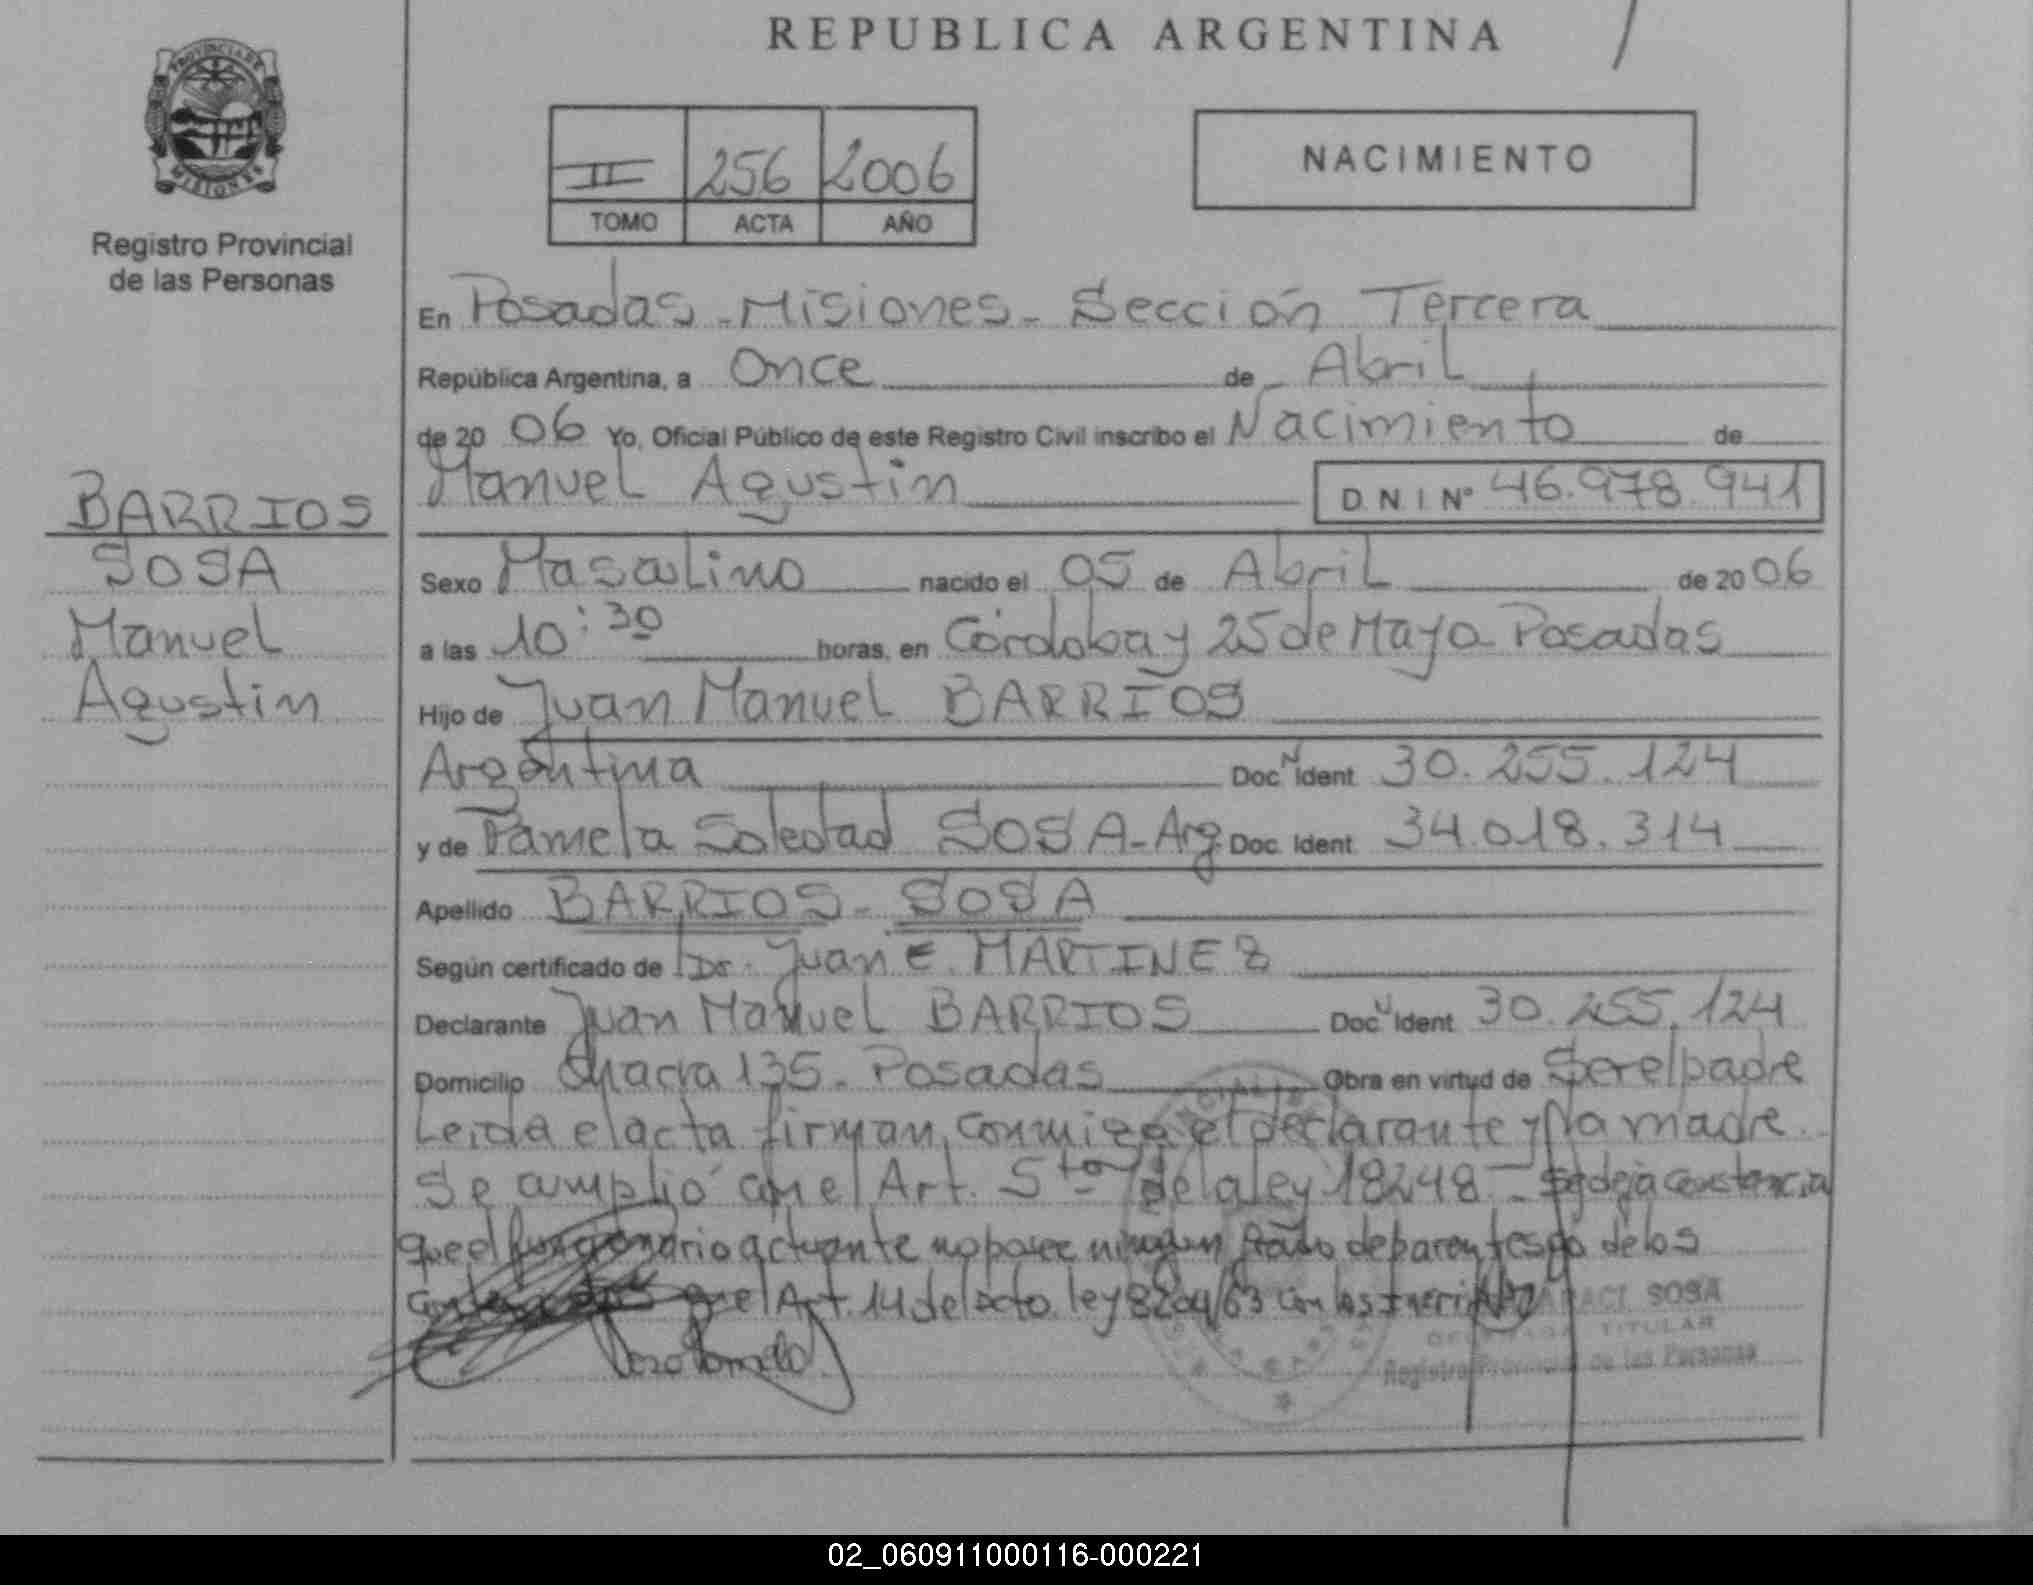 REPUBLICA ARGENTINA
PROVINCIA DE
MISIONES
Registro Provincial
de las Personas
II 256 2006
TOMO ACTA AÑO
NACIMIENTO
En Posadas - Misiones - Sección Tercera
República Argentina, a Once de Abril
de 20 06 Yo, Oficial Público de este Registro Civil inscribo el Nacimiento de
Manuel Agustin D.N.I. N° 46.978.941
BARRIOS
SOSA
Manuel
Agustin
Sexo Masculino nacido el 05 de Abril de 20 06
a las 10:30 horas, en Córdoba y 25 de Mayo - Posadas
Hijo de Juan Manuel BARRIOS
Argentina Doc. N Ident 30.255.124
y de Pamela Soledad SOSA - Arg. Doc. Ident 34.018.314
Apellido BARRIOS - SOSA
Según certificado de Dr. Juan E. MARTINEZ
Declarante Juan Manuel BARRIOS Doc. N Ident 30.255.124
Domicilio Chacra 135 - Posadas Obra en virtud de Ser el padre
Leida el acta firman conmigo el declarante y la madre.
Se cumplió con el Art. 5to de la ley 18248 - Se deja constancia
que el funcionario actuante no posee ningun grado de parentesco de los
que el Art. 14 del dcto. ley 8204/63 con los
SOSA
TITULAR
Registro Provincial de las Personas
02_060911000116-000221